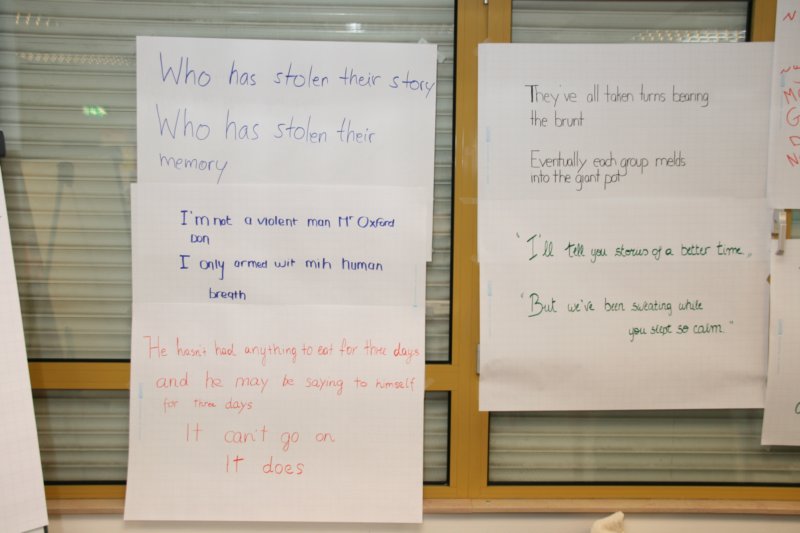 Who has stolen their story
Who has stolen their
memory
I'm not a violent man Mr Oxford
Don
I only armed wit mih human
breath
He hasn't had anything to eat for three days
and he may be saying to himself
for three days
It can't go on
It does
They've all taken turns bearing
the brunt
Eventually each group melds
into the giant pot
"I'll tell you storys of a better time„
"But we've been sweating while
you slept so calm."